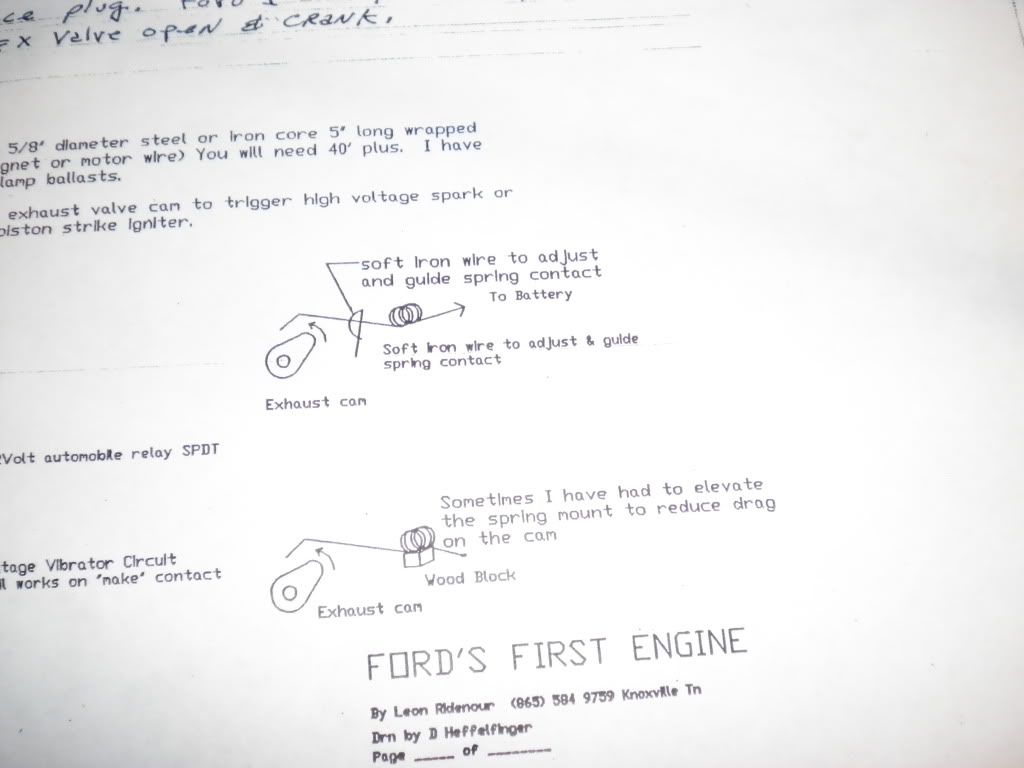 ce plug.
Ex Valve open & CRANK.
5/8" diameter steel or iron core 5" long wrapped
gnet or motor wire) You will need 40' plus. I have
lamp ballasts.
exhaust valve cam to trigger high voltage spark or
piston strike igniter.
soft iron wire to adjust
and guide spring contact
To Battery
Soft iron wire to adjust & guide
spring contact
Exhaust cam
Volt automobile relay SPDT
Sometimes I have had to elevate
the spring mount to reduce drag
on the cam
tage Vibrator Circuit
works on "make" contact
Wood Block
Exhaust cam
FORD'S FIRST ENGINE
By Leon Ridenour (865) 584 9759 Knoxville Tn
Drn by D Heffelfinger
Page _____ of ________